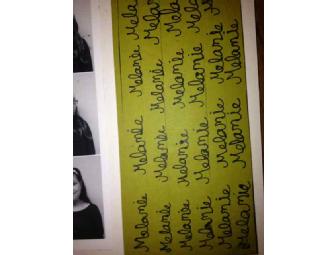 Melanie Melanie Melanie Mela
Melanie Melanie Melanie Mela
Melanie Melanie Melanie Mela
Melanie Melanie Melanie Mela
Melanie Melanie Melanie M
Melanie Melanie Melanie